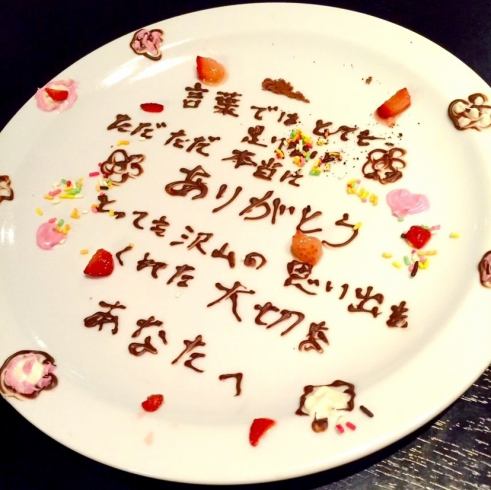 言葉では とても
足りない
ただただ 本当に
ありがとう
とっても沢山の 思い出を
くれた 大切な
あなたへ